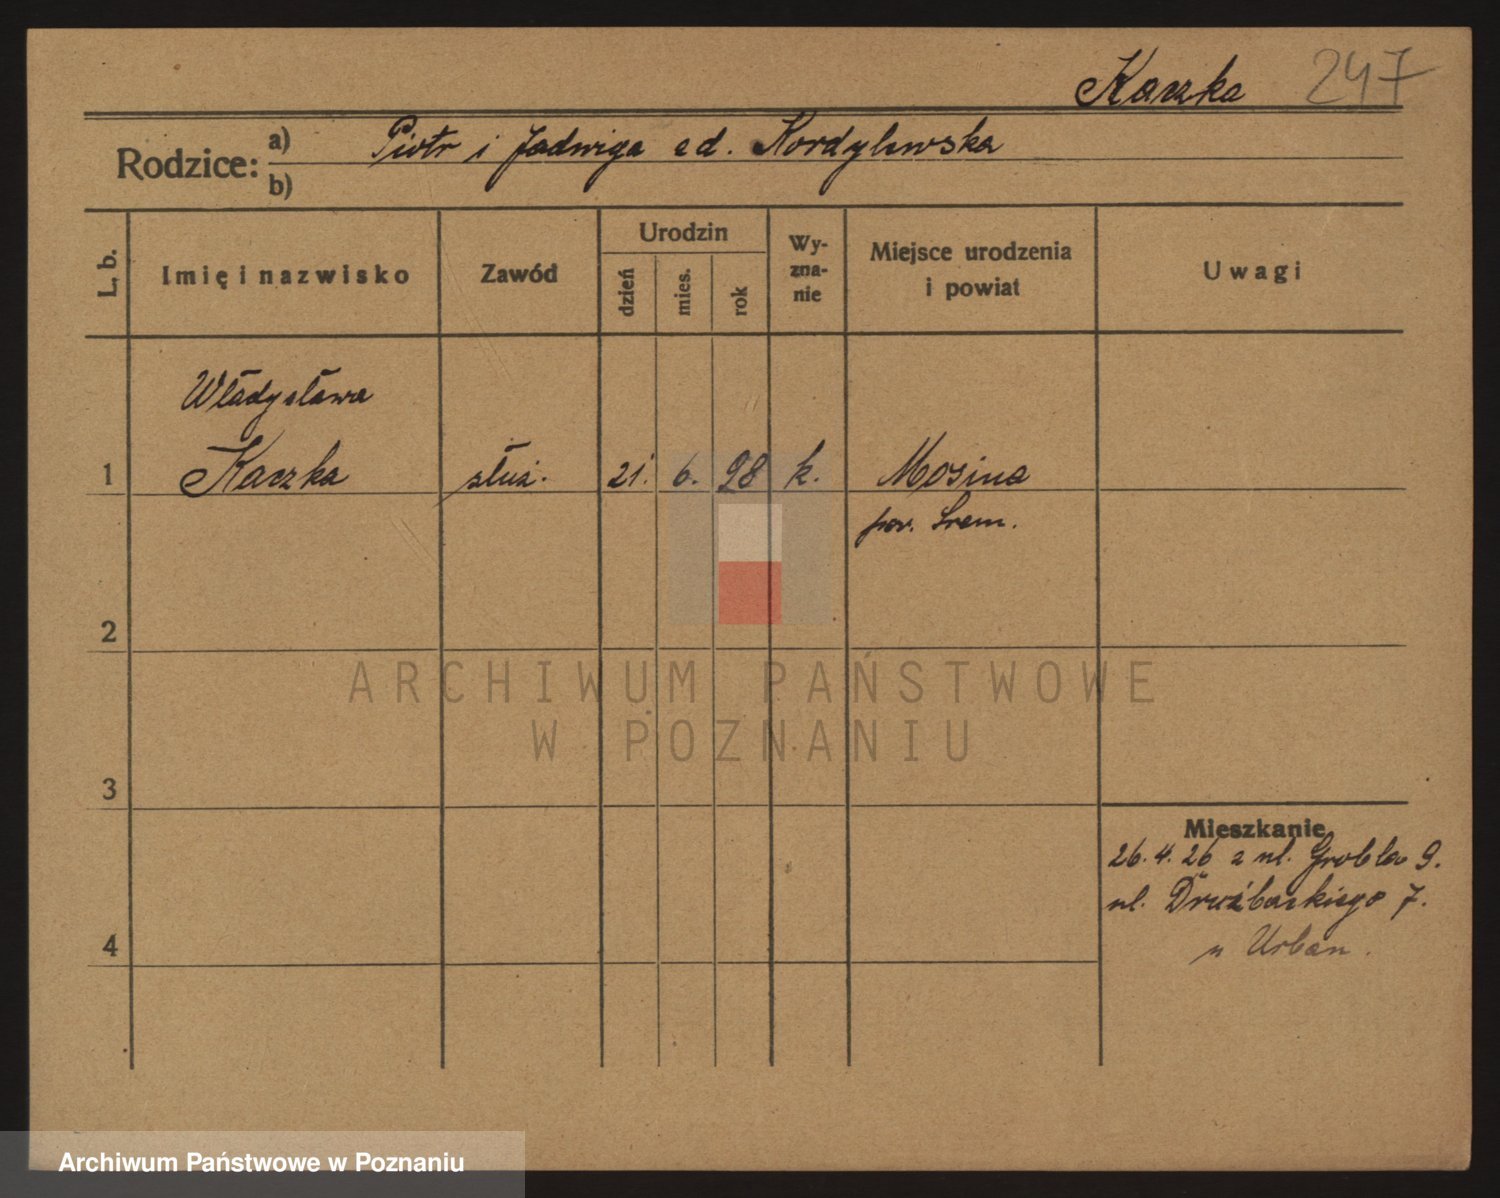 Kaczka 247
Rodzice: a) Piotr i Jadwiga zd. Kordylewska
b)
L. b.
Imię i nazwisko
Zawód
Urodzin
dzień
mies.
rok
Wy-
zna-
nie
Miejsce urodzenia
i powiat
Uwagi
Władysława
1 Kaczka służ. 21. 6. 98 k. Mosina
pow. Śrem.
2
3
4
Mieszkanie
26.4.26 z ul. Grobla 9.
ul. Drużbackiego 7.
u Urban.
ARCHIWUM PAŃSTWOWE
W POZNANIU
Archiwum Państwowe w Poznaniu